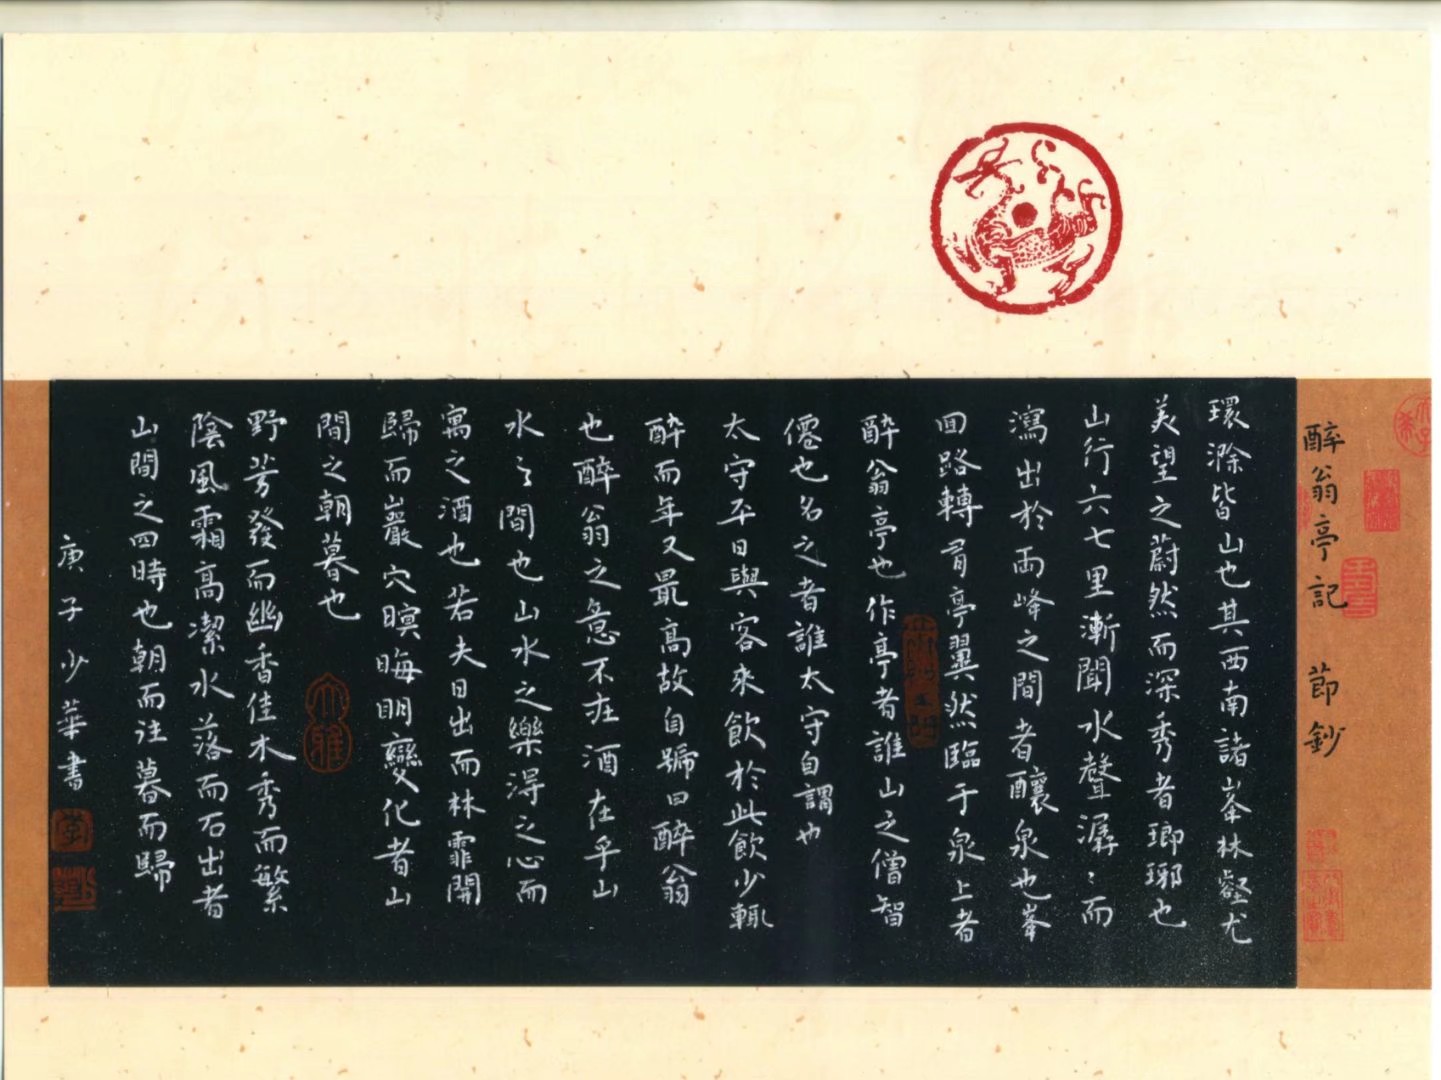 醉翁亭記 節鈔
環滁皆山也其西南諸峯林壑尤
美望之蔚然而深秀者瑯琊也
山行六七里漸聞水聲潺〻而
瀉出於兩峰之間者釀泉也峯
回路轉有亭翼然臨于泉上者
醉翁亭也作亭者誰山之僧智
僊也名之者誰太守自謂也
太守平日與客來飲於此飲少輒
醉而年又最高故自號曰醉翁
也醉翁之意不在酒在乎山
水之間也山水之樂得之心而
寓之酒也若夫日出而林霏開
歸而巖穴暝晦明變化者山
間之朝暮也
野芳發而幽香佳木秀而繁
陰風霜高潔水落而石出者
山間之四時也朝而往暮而歸
庚子少華書
大雅